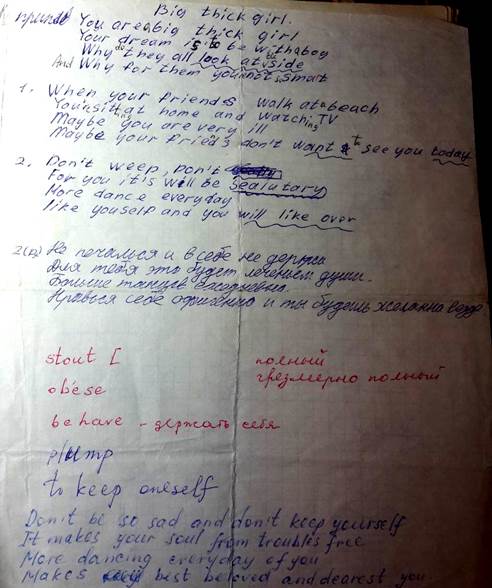 Big thick girl.
припев You are a big thick girl
Your dream is to be with a boy
Why do they all look at side
And why for them you not smart
1. When your friends walk at a beach
You sitting at home and watching TV
Maybe you are very ill
Maybe your frieds don't want to see you today
2. Don't weep, Don't
For you it's will be Sealutary
More dance everyday
like youself and you will like over
2(п) Не печалься и в себе не держи
Для тебя это будет лечением души.
Больше танцев ежедневно.
Нравься себе и ты будешь желанна везде
stout [ полный
obese чрезмерно полный
behave - держать себя
plump
to keep oneself
Don't be so sad and don't keep yourself
It makes your soul from troubles free
More dancing everyday of you
Makes best beloved and dearest you